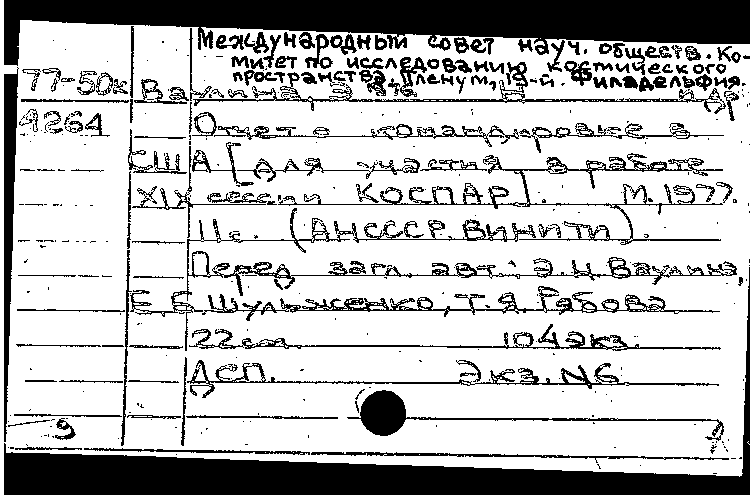 Международный совет науч. обществ. Ко-
митет по исследованию космического
пространства. Пленум, 19-й. Филадельфия.
77-50к Ваулина, Э и др
4264 Отчет о командировке в
США [для участия в работе
XIX сессии КОСПАР]. М., 1977.
11с. (АНСССР. ВИНИТИ).
Перед загл. авт.: Э.Н. Ваулина,
Е.Б. Шульженко, Т.Я. Рябова.
22см. 104экз.
ДСП. Экз. N6
9